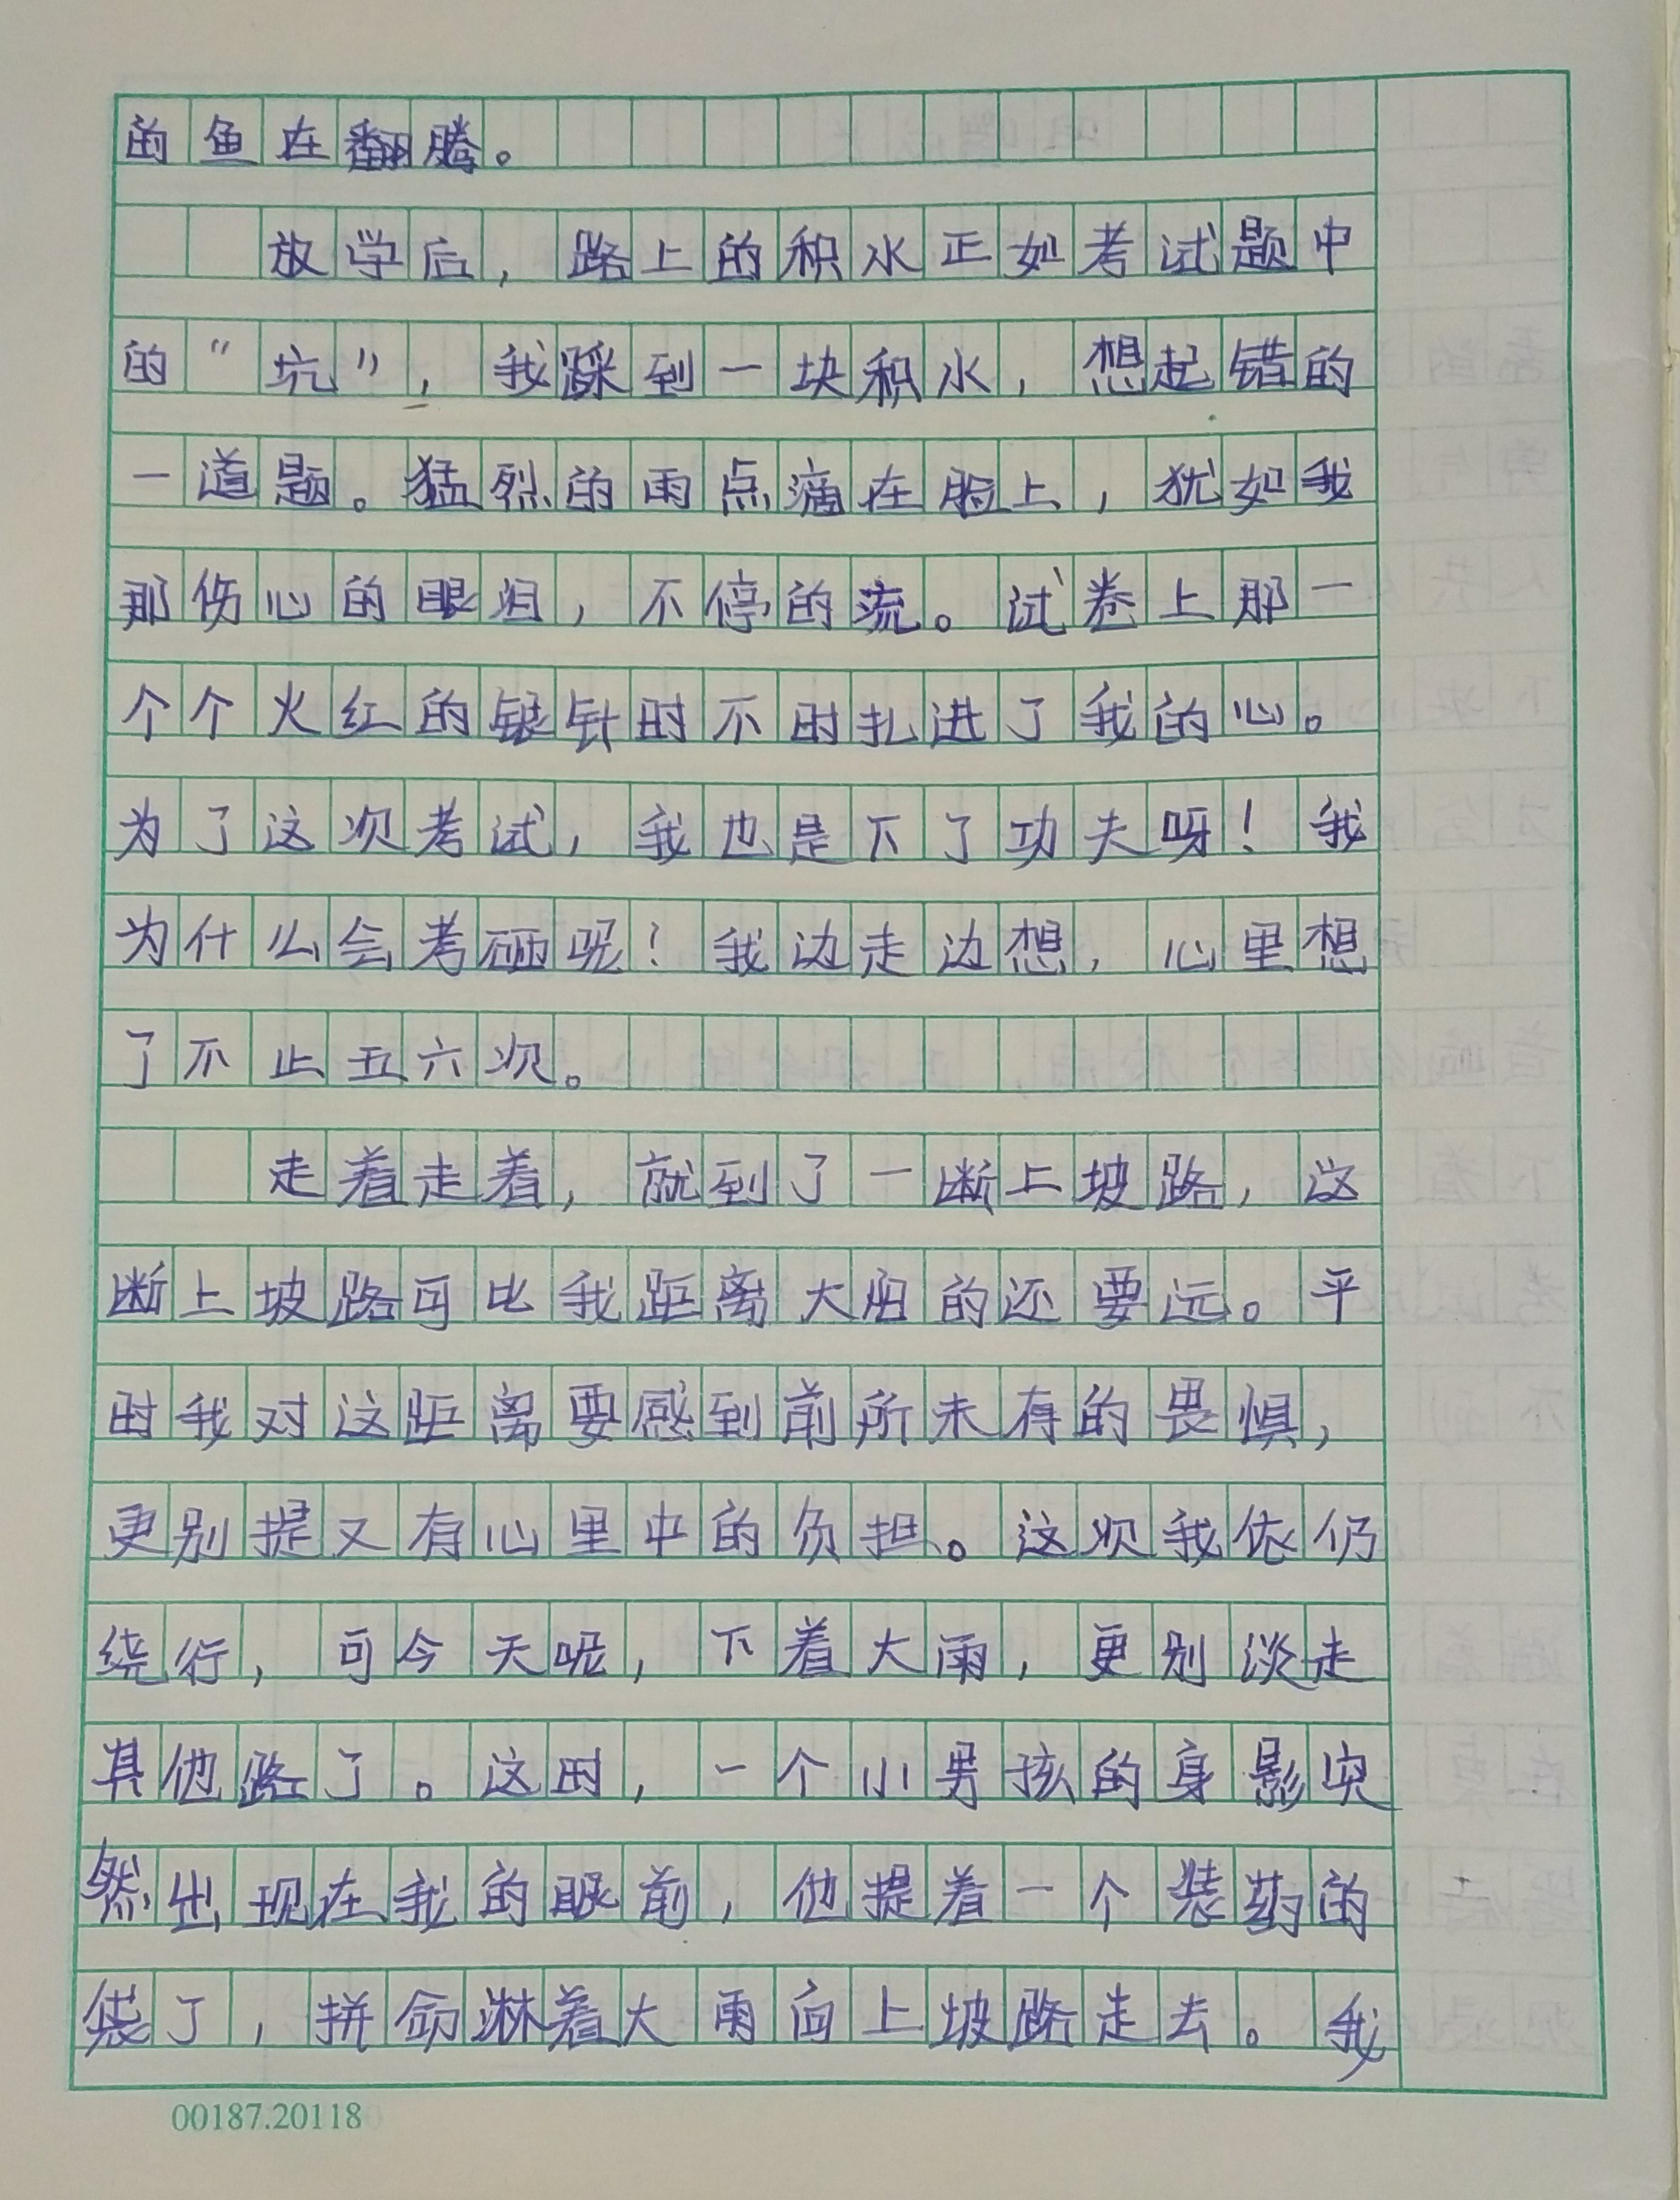 的鱼在翻腾。
放学后，路上的积水正如考试题中
的“坑”，我踩到一块积水，想起错的
一道题。猛烈的雨点滴在脸上，犹如我
那伤心的眼泪，不停的流。试卷上那一
个个火红的银针时不时扎进了我的心。
为了这次考试，我也是下了功夫呀！我
为什么会考砸呢！我边走边想，心里想
了不止五六次。
走着走着，就到了一断上坡路，这
断上坡路可比我距离大阳的还要远。平
时我对这距离要感到前所未有的畏惧，
更别提又有心里中的负担。这次我依仍
绕行，可今天呢，下着大雨，更别淡走
其他路了。这时，一个小男孩的身影突
然出现在我的眼前，他提着一个装药的
袋了，拼命淋着大雨向上坡路走去。我
00187.20118